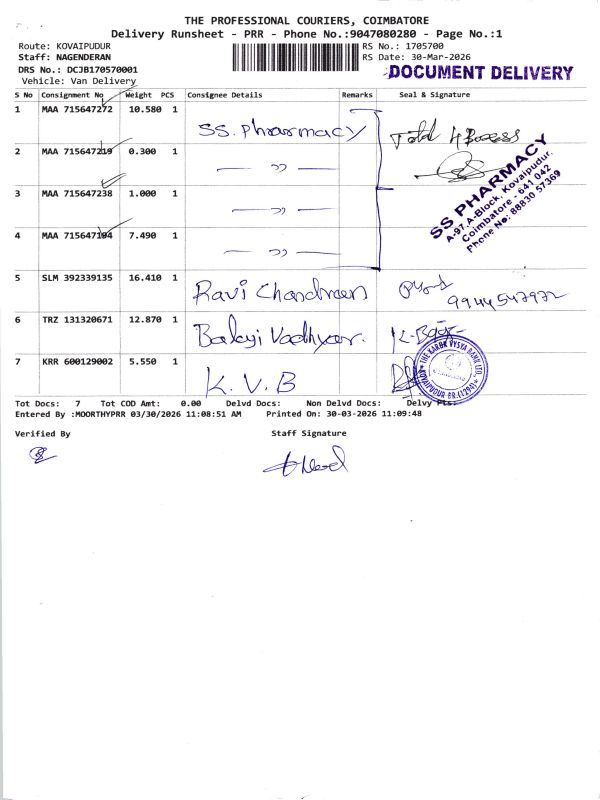 THE PROFESSIONAL COURIERS, COIMBATORE
Delivery Runsheet - PRR - Phone No.:9047080280 - Page No.:1
Route: KOVAIPUDUR
RS No.: 1705700
Staff: NAGENDERAN
RS Date: 30-Mar-2026
DRS No.: DCJB170570001
DOCUMENT DELIVERY
Vehicle: Van Delivery
S No Consignment No Weight PCS Consignee Details Remarks Seal & Signature
1 MAA 715647272 10.580 1 SS. Pharmacy Total 4 Boxess
2 MAA 715647219 0.300 1 — " —
3 MAA 715647238 1.000 1 — " —
4 MAA 715647194 7.490 1 — " —
SS PHARMACY
A-97, A-Block, Kovaipudur,
Coimbatore - 641 042
Phone No: 88830 57369
5 SLM 392339135 16.410 1 Ravi Chandran
9944547972
6 TRZ 131320671 12.870 1 Balaji Vadhyar.
7 KRR 600129002 5.550 1 K.V.B
THE KARUR VYSYA BANK LTD.
KOVAIPUDUR BR.(1294)
Tot Docs: 7 Tot COD Amt: 0.00 Delvd Docs: Non Delvd Docs: Delvy Pts:
Entered By :MOORTHYPRR 03/30/2026 11:08:51 AM Printed On: 30-03-2026 11:09:48
Verified By Staff Signature